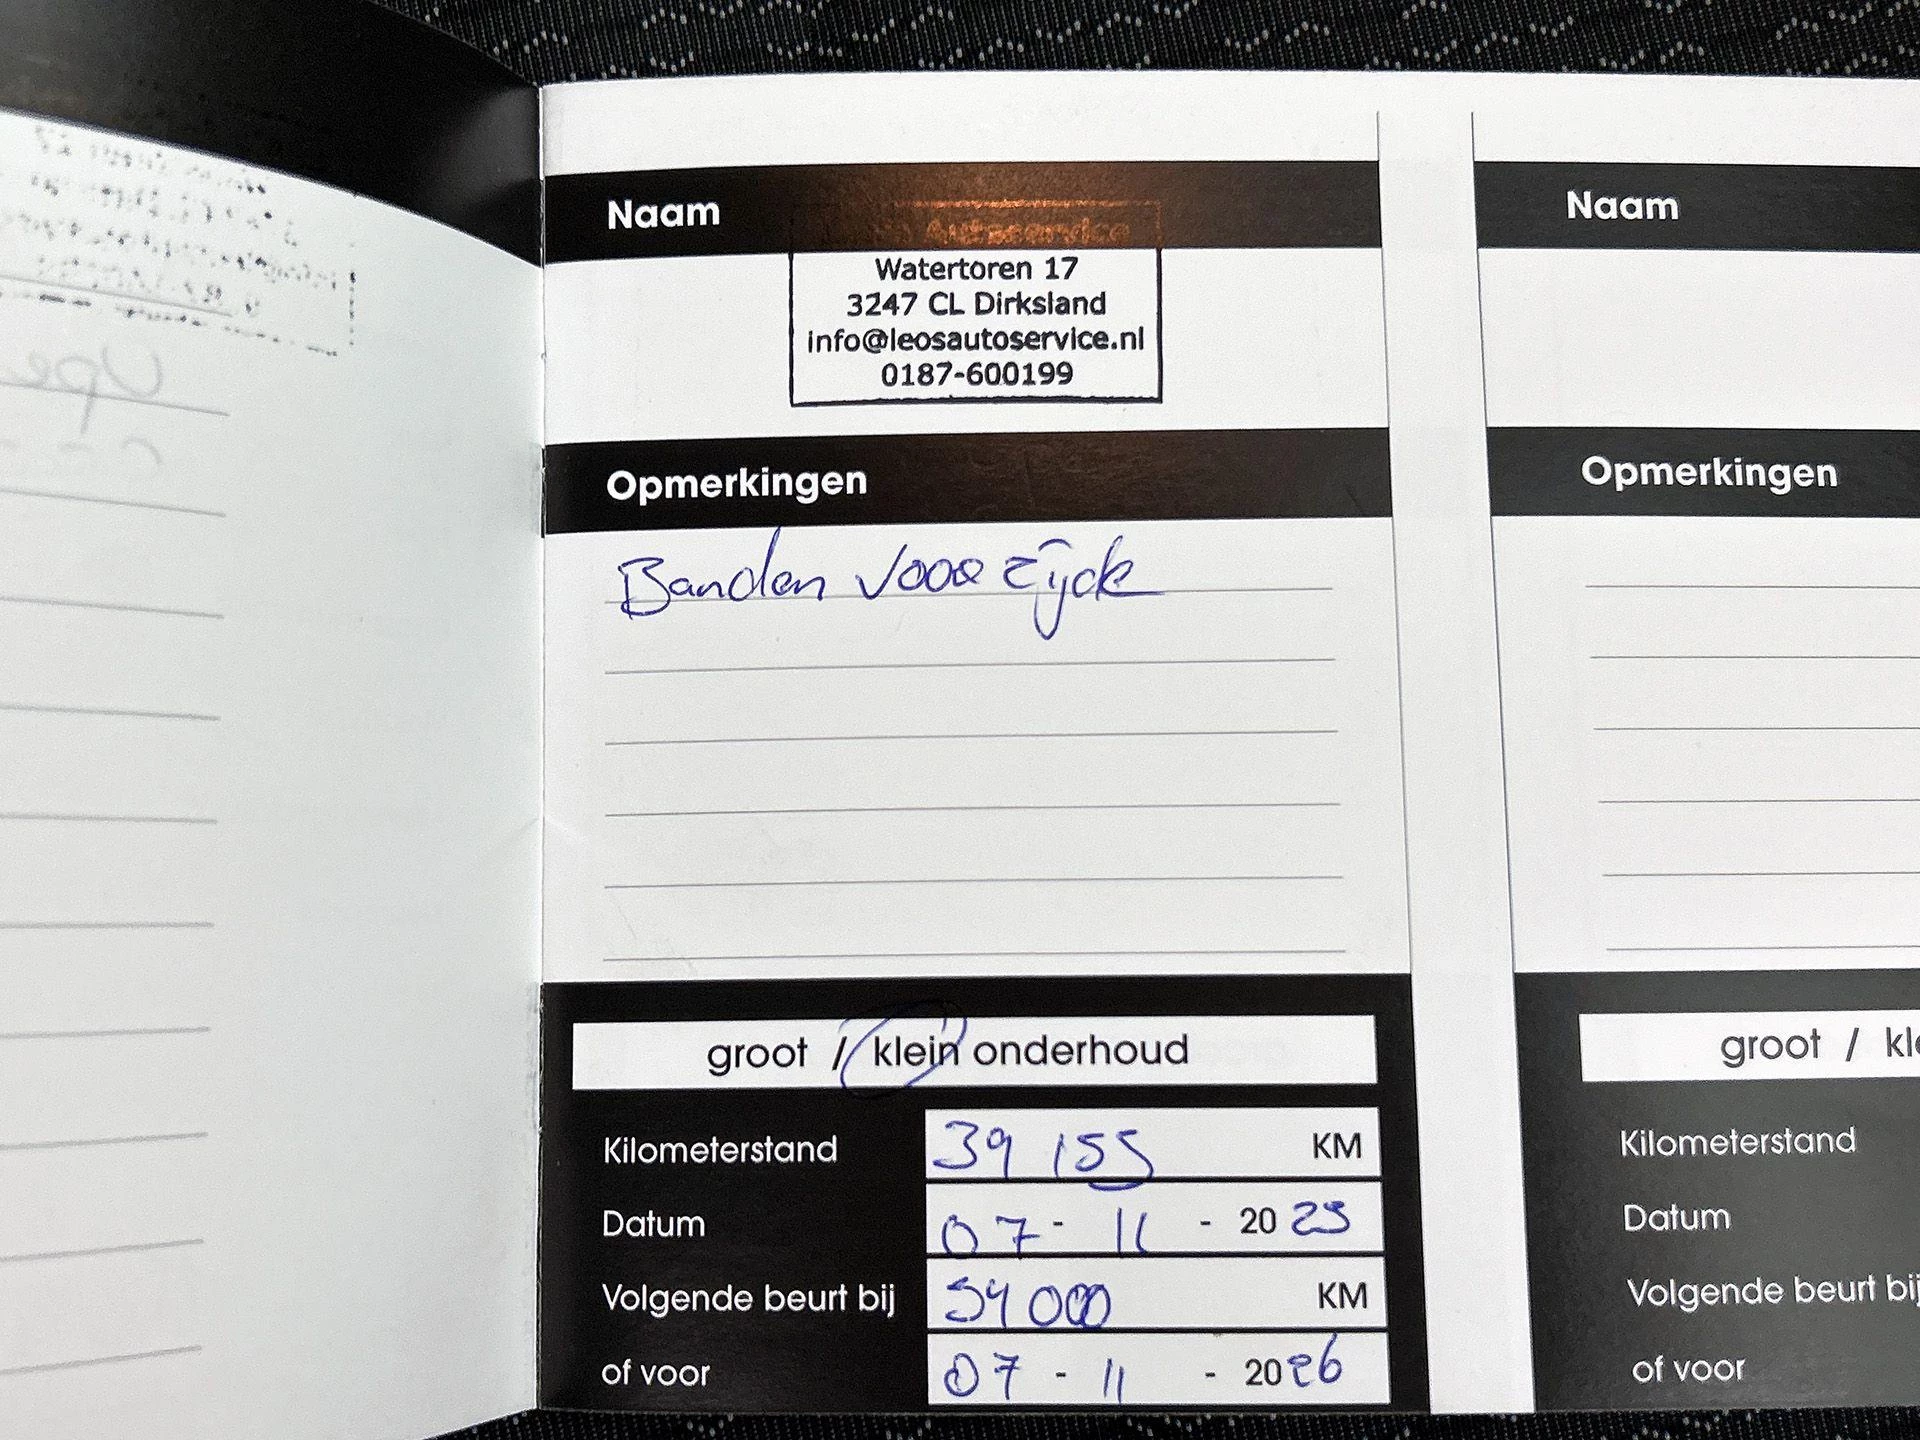 Naam
Autoservice
Watertoren 17
3247 CL Dirksland
info@leosautoservice.nl
0187-600199
Opmerkingen
Banden voor
groot / klein onderhoud
Kilometerstand 39 155 KM
Datum 07 - 11 - 2025
Volgende beurt bij 54 000 KM
of voor 07 - 11 - 2026
Naam
Opmerkingen
groot / kle
Kilometerstand
Datum
Volgende beurt bij
of voor